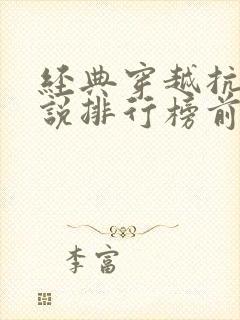 經典穿越抗
說排行榜前
李富